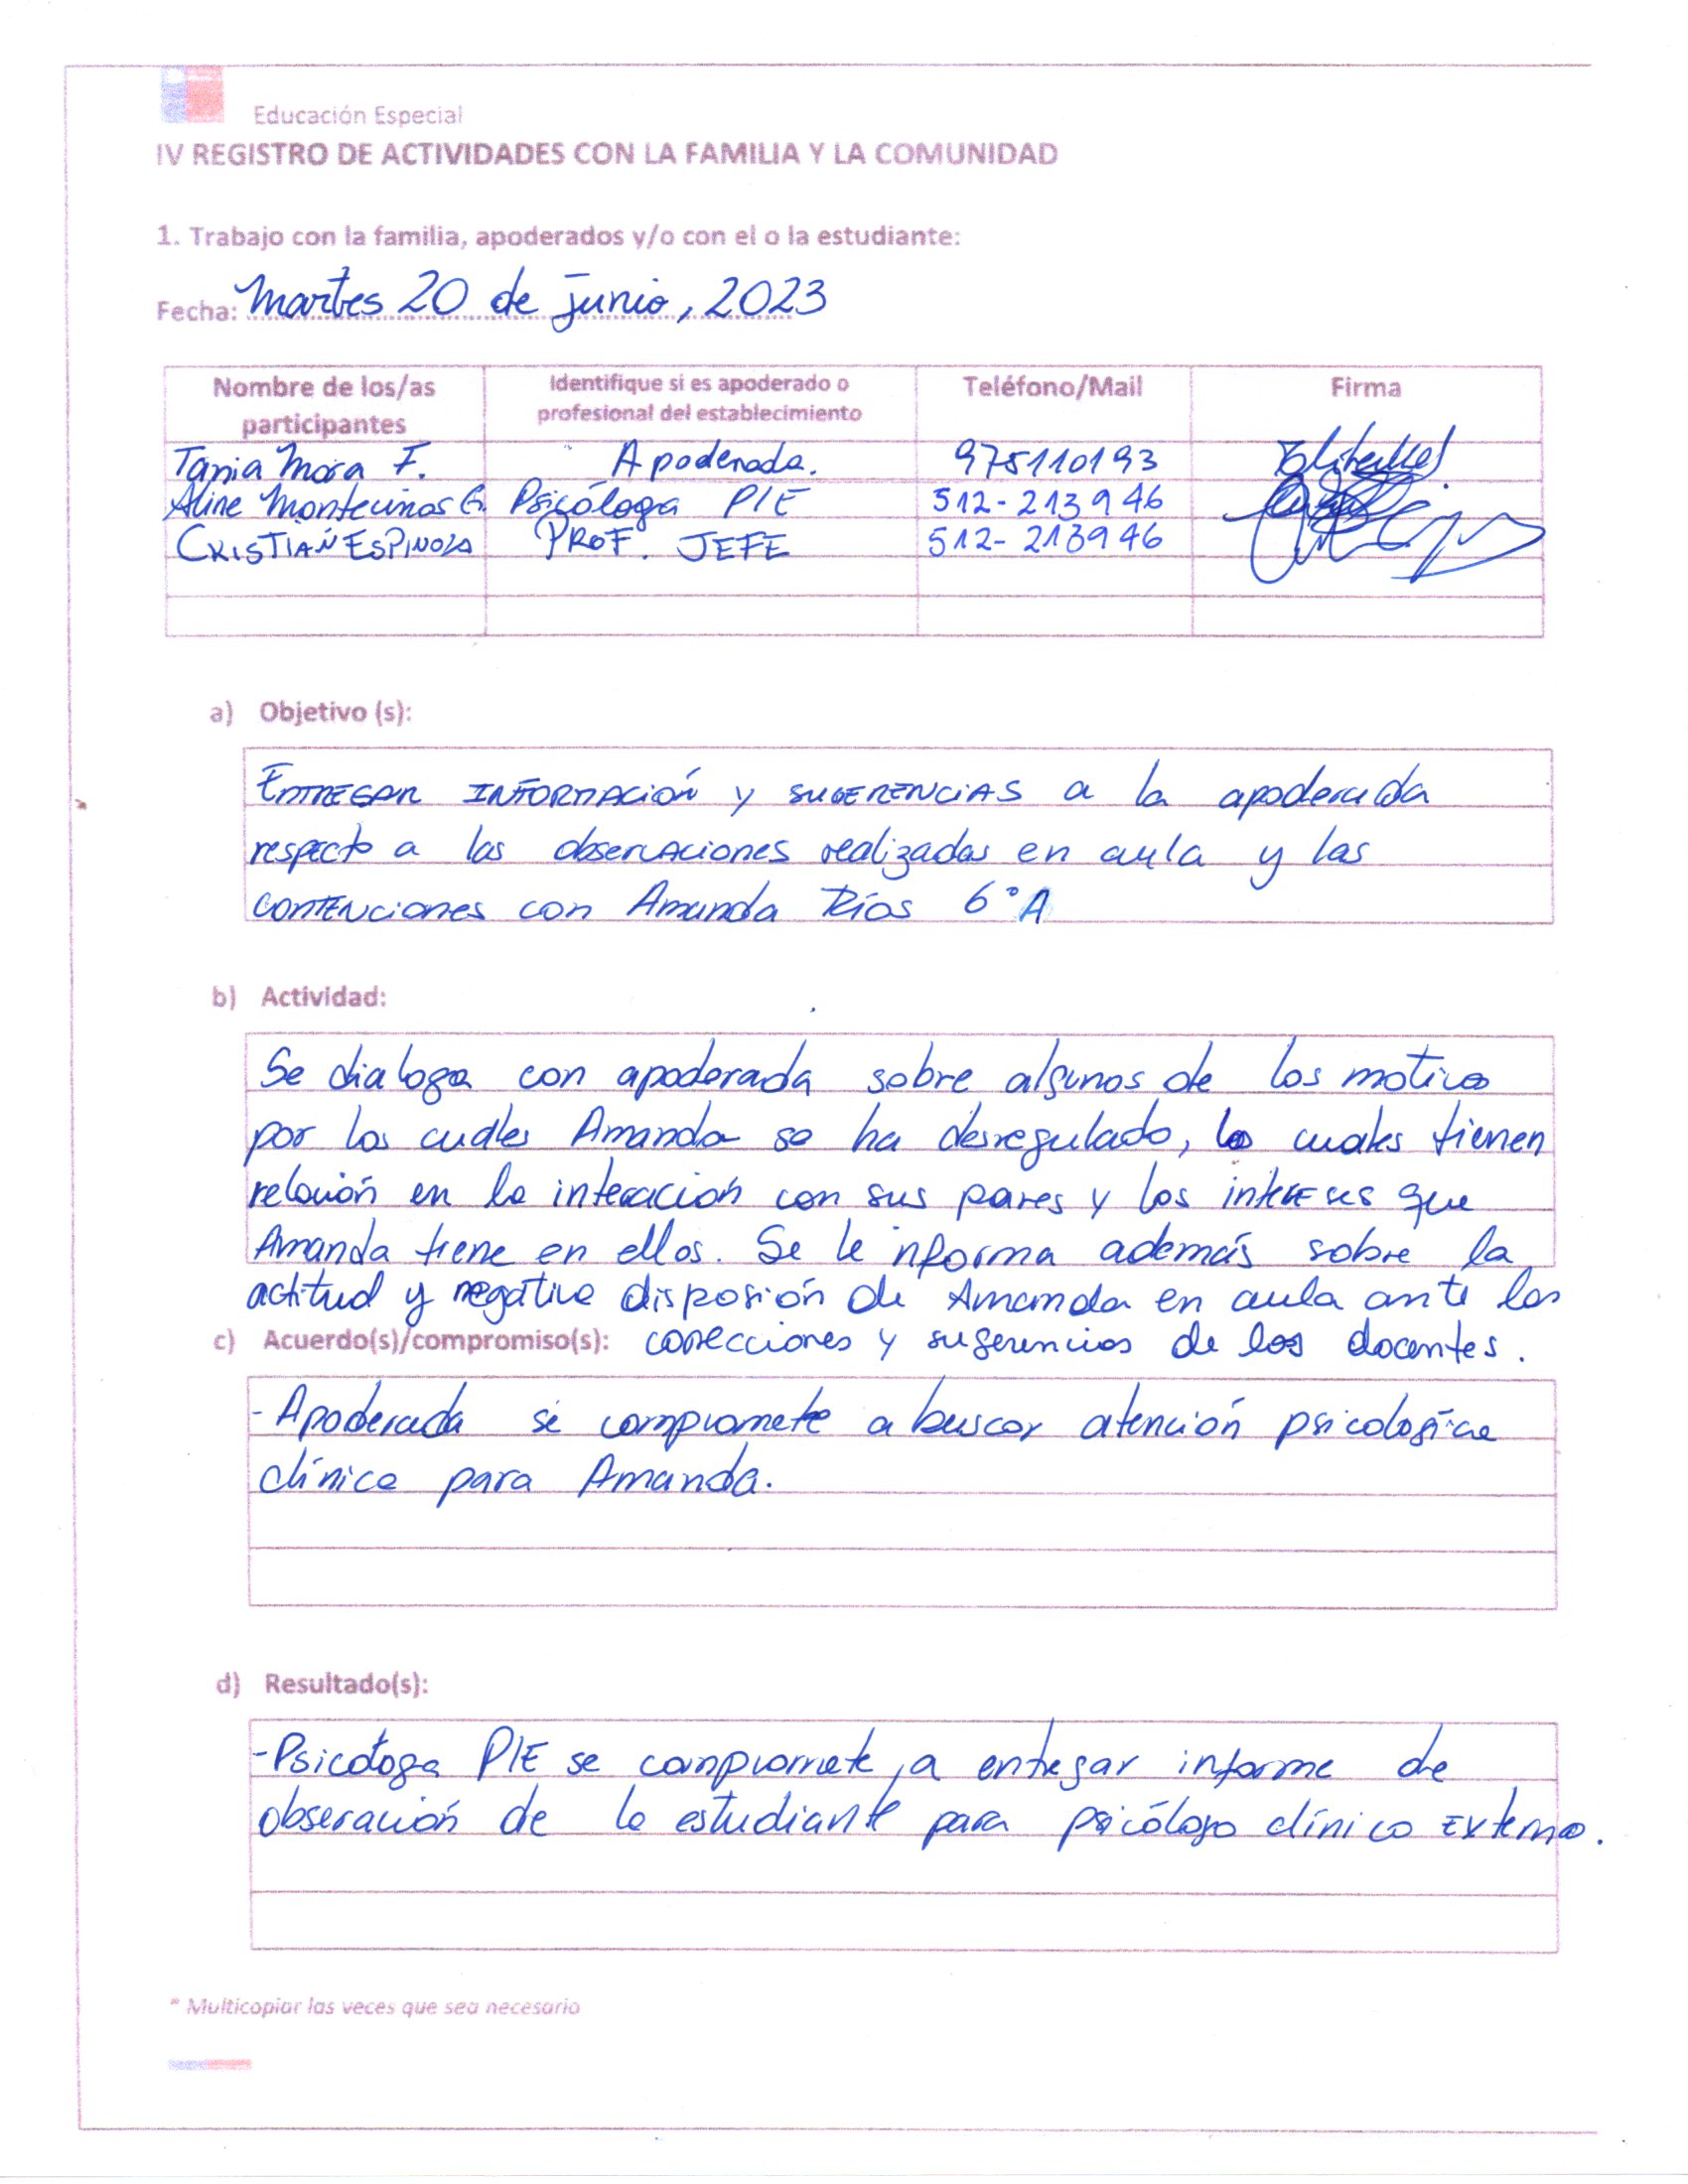 Educación Especial
IV REGISTRO DE ACTIVIDADES CON LA FAMILIA Y LA COMUNIDAD
1. Trabajo con la familia, apoderados y/o con el o la estudiante:
Fecha: Martes 20 de junio, 2023
Nombre de los/as participantes Identifique si es apoderado o profesional del establecimiento Teléfono/Mail Firma
Tania Mora F. Apoderada. 975110193
Aline Montecinos G. Psicóloga PIE 512-213946
CRISTIAN ESPINOZA PROF. JEFE 512-213946
a) Objetivo (s):
ENTREGAR INFORMACIÓN y SUGERENCIAS a la apoderada
respecto a las observaciones realizadas en aula y las
contenciones con Amanda Ríos 6°A
b) Actividad:
Se dialoga con apoderada sobre algunos de los motivos
por los cuales Amanda se ha desregulado, los cuales tienen
relación en la interacion con sus pares y los intereses que
Amanda tiene en ellos. Se le nforma además sobre la
actitud y negativa disposión de Amanda en aula ante las
c) Acuerdo(s)/compromiso(s): correcciones y sugerencias de los docentes.
- Apoderada se compromete a buscar atención psicológica
clínica para Amanda.
d) Resultado(s):
- Psicóloga PIE se compromete a entregar informe de
obseración de la estudiante para psicólogo clínico externo.
* Multicopiar las veces que sea necesario